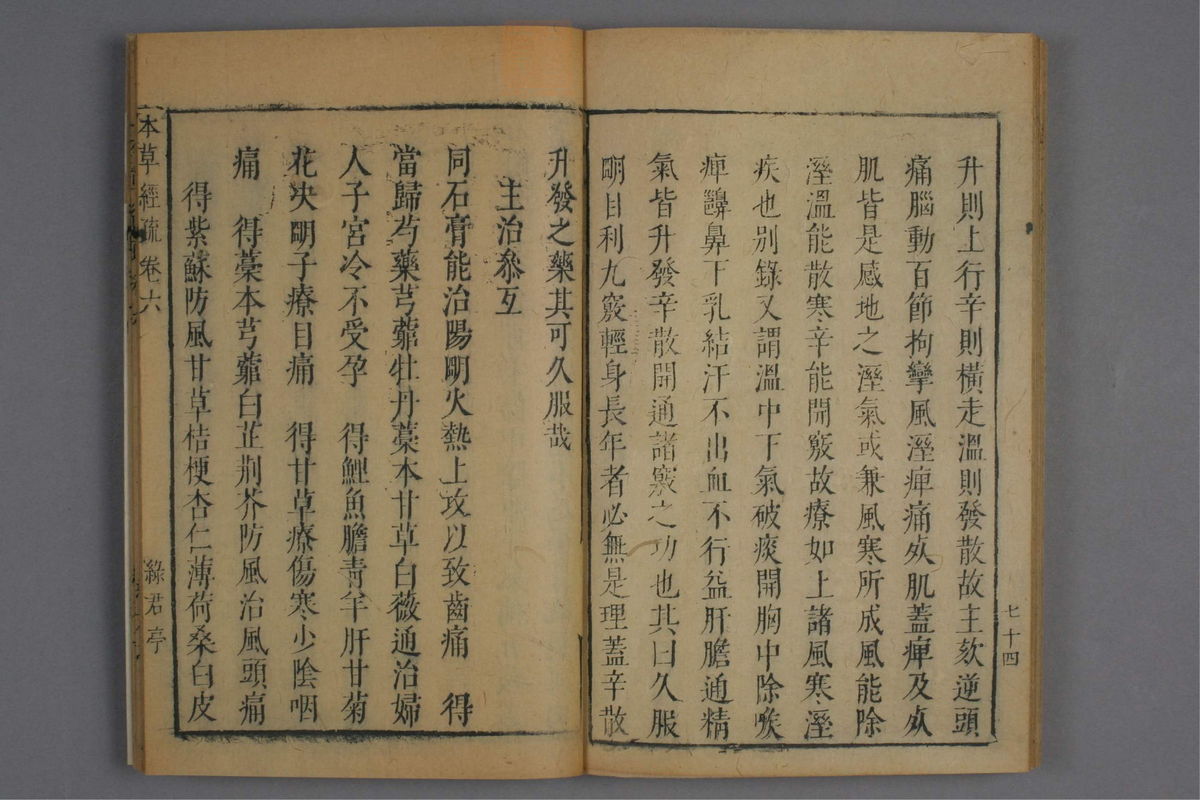 升則上行辛則橫走溫則發散故主欬逆頭
痛腦動百節拘攣風溼痺痛死肌蓋痺及死
肌皆是感地之溼氣或兼風寒所成風能除
溼溫能散寒辛能開竅故療如上諸風寒溼
疾也別錄又謂溫中下氣破痰開胸中除喉
痺齆鼻下乳結汗不出血不行益肝膽通精
氣皆升發辛散開通諸竅之功也其曰久服
明目利九竅輕身長年者必無是理蓋辛散
升發之藥其可久服哉
主治參互
同石膏能治陽明火熱上攻以致齒痛 得
當歸芍藥芎藭牡丹藁本甘草白薇通治婦
人子宮冷不受孕 得鯉魚膽青羊肝甘菊
花決明子療目痛 得甘草療傷寒少陰咽
痛 得藁本芎藭白芷荆芥防風治風頭痛
得紫蘇防風甘草桔梗杏仁薄荷桑白皮
七十四
本草經疏 卷六
綠君亭